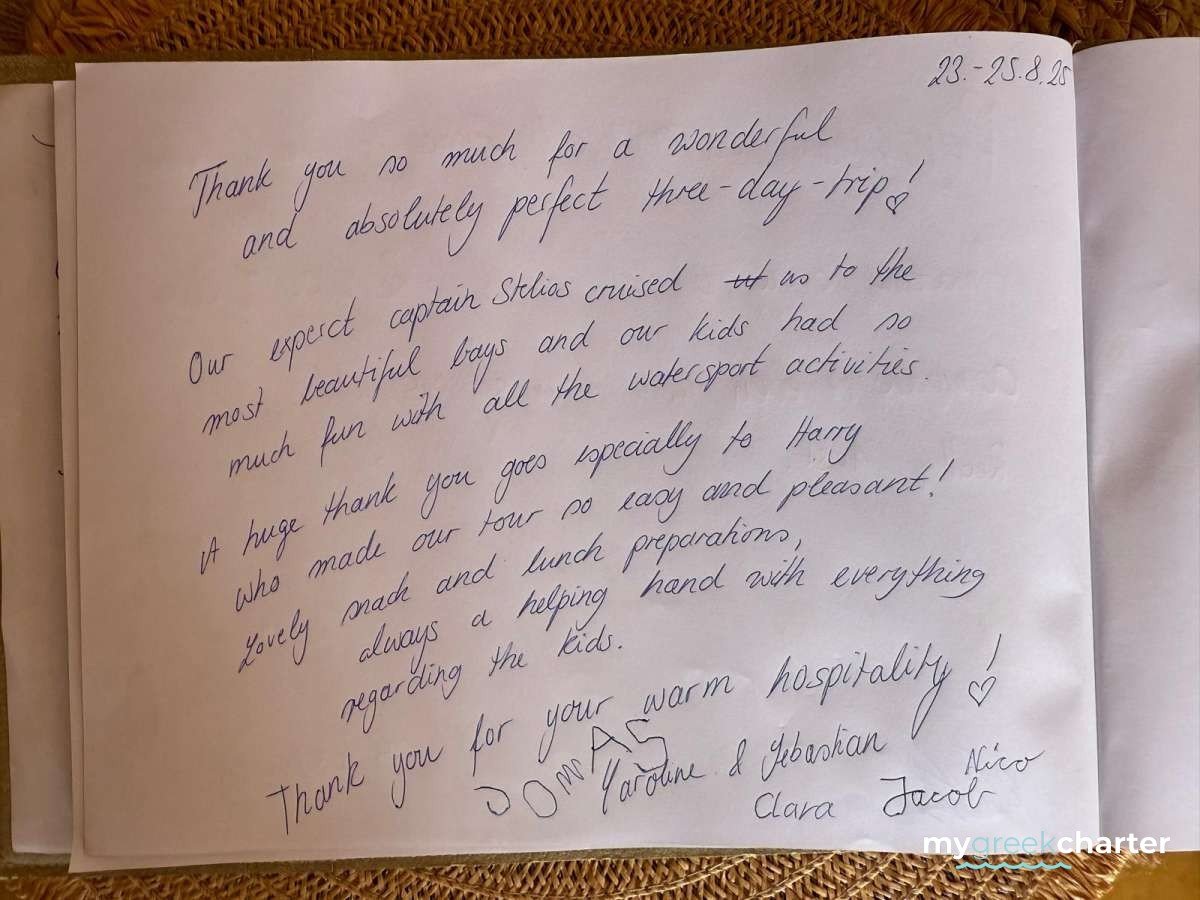 23.-25.8.25
Thank you so much for a wonderful
and absolutely perfect three-day-trip! ♡
Our experct captain Stelios cruised ut us to the
most beautiful bays and our kids had so
much fun with all the watersport activities.
A huge thank you goes especially to Harry
who made our tour so easy and pleasant!
Lovely snack and lunch preparations,
always a helping hand with everything
regarding the kids.
Thank you for your warm hospitality! ♡
Karoline & Sebastian
Nico
Clara Jacob
mygreekcharter